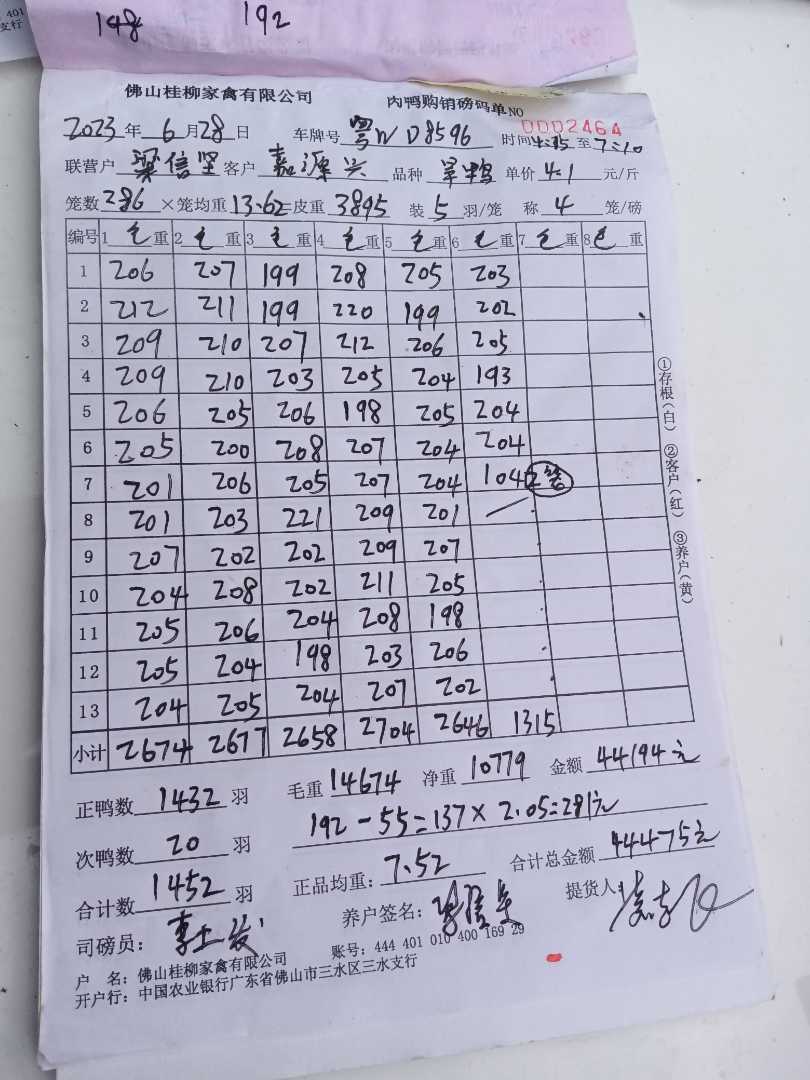 401
支行
148 192
佛山桂柳家禽有限公司 内鸭购销磅码单 NO 0002464
2023年 6月28日 车牌号 粤W D8596 时间 4:35 至 7:10
联营户 梁信坚 客户 嘉源兴 品种 单价 4.1 元/斤
笼数 286 ×笼均重 13.62=皮重 3895 装 5 羽/笼 称 4 笼/磅
编号 1 毛重 2 毛重 3 毛重 4 毛重 5 毛重 6 毛重 7 毛重 8 毛重
1 206 207 199 208 205 203
2 212 211 199 220 199 202
3 209 210 207 212 206 205
4 209 210 203 205 204 193
5 206 205 206 198 205 204
6 205 200 208 207 204 204
7 201 206 205 207 204 104 2笼
8 201 203 221 209 201 /
9 207 202 202 209 207
10 204 208 202 211 205
11 205 206 204 208 198
12 205 204 198 203 206
13 204 205 204 207 202
小计 2674 2677 2658 2704 2646 1315
正鸭数 1432 羽 毛重 14674 净重 10779 金额 44194元
192-55=137×2.05=281元
次鸭数 20 羽
合计数 1452 羽 正品均重: 7.52 合计总金额 44475元
司磅员: 养户签名: 提货人:
户 名: 佛山桂柳家禽有限公司 账号: 444 401 010 400 169 29
开户行: 中国农业银行广东省佛山市三水区三水支行
①存根(白) ②客户(红) ③养户(黄)